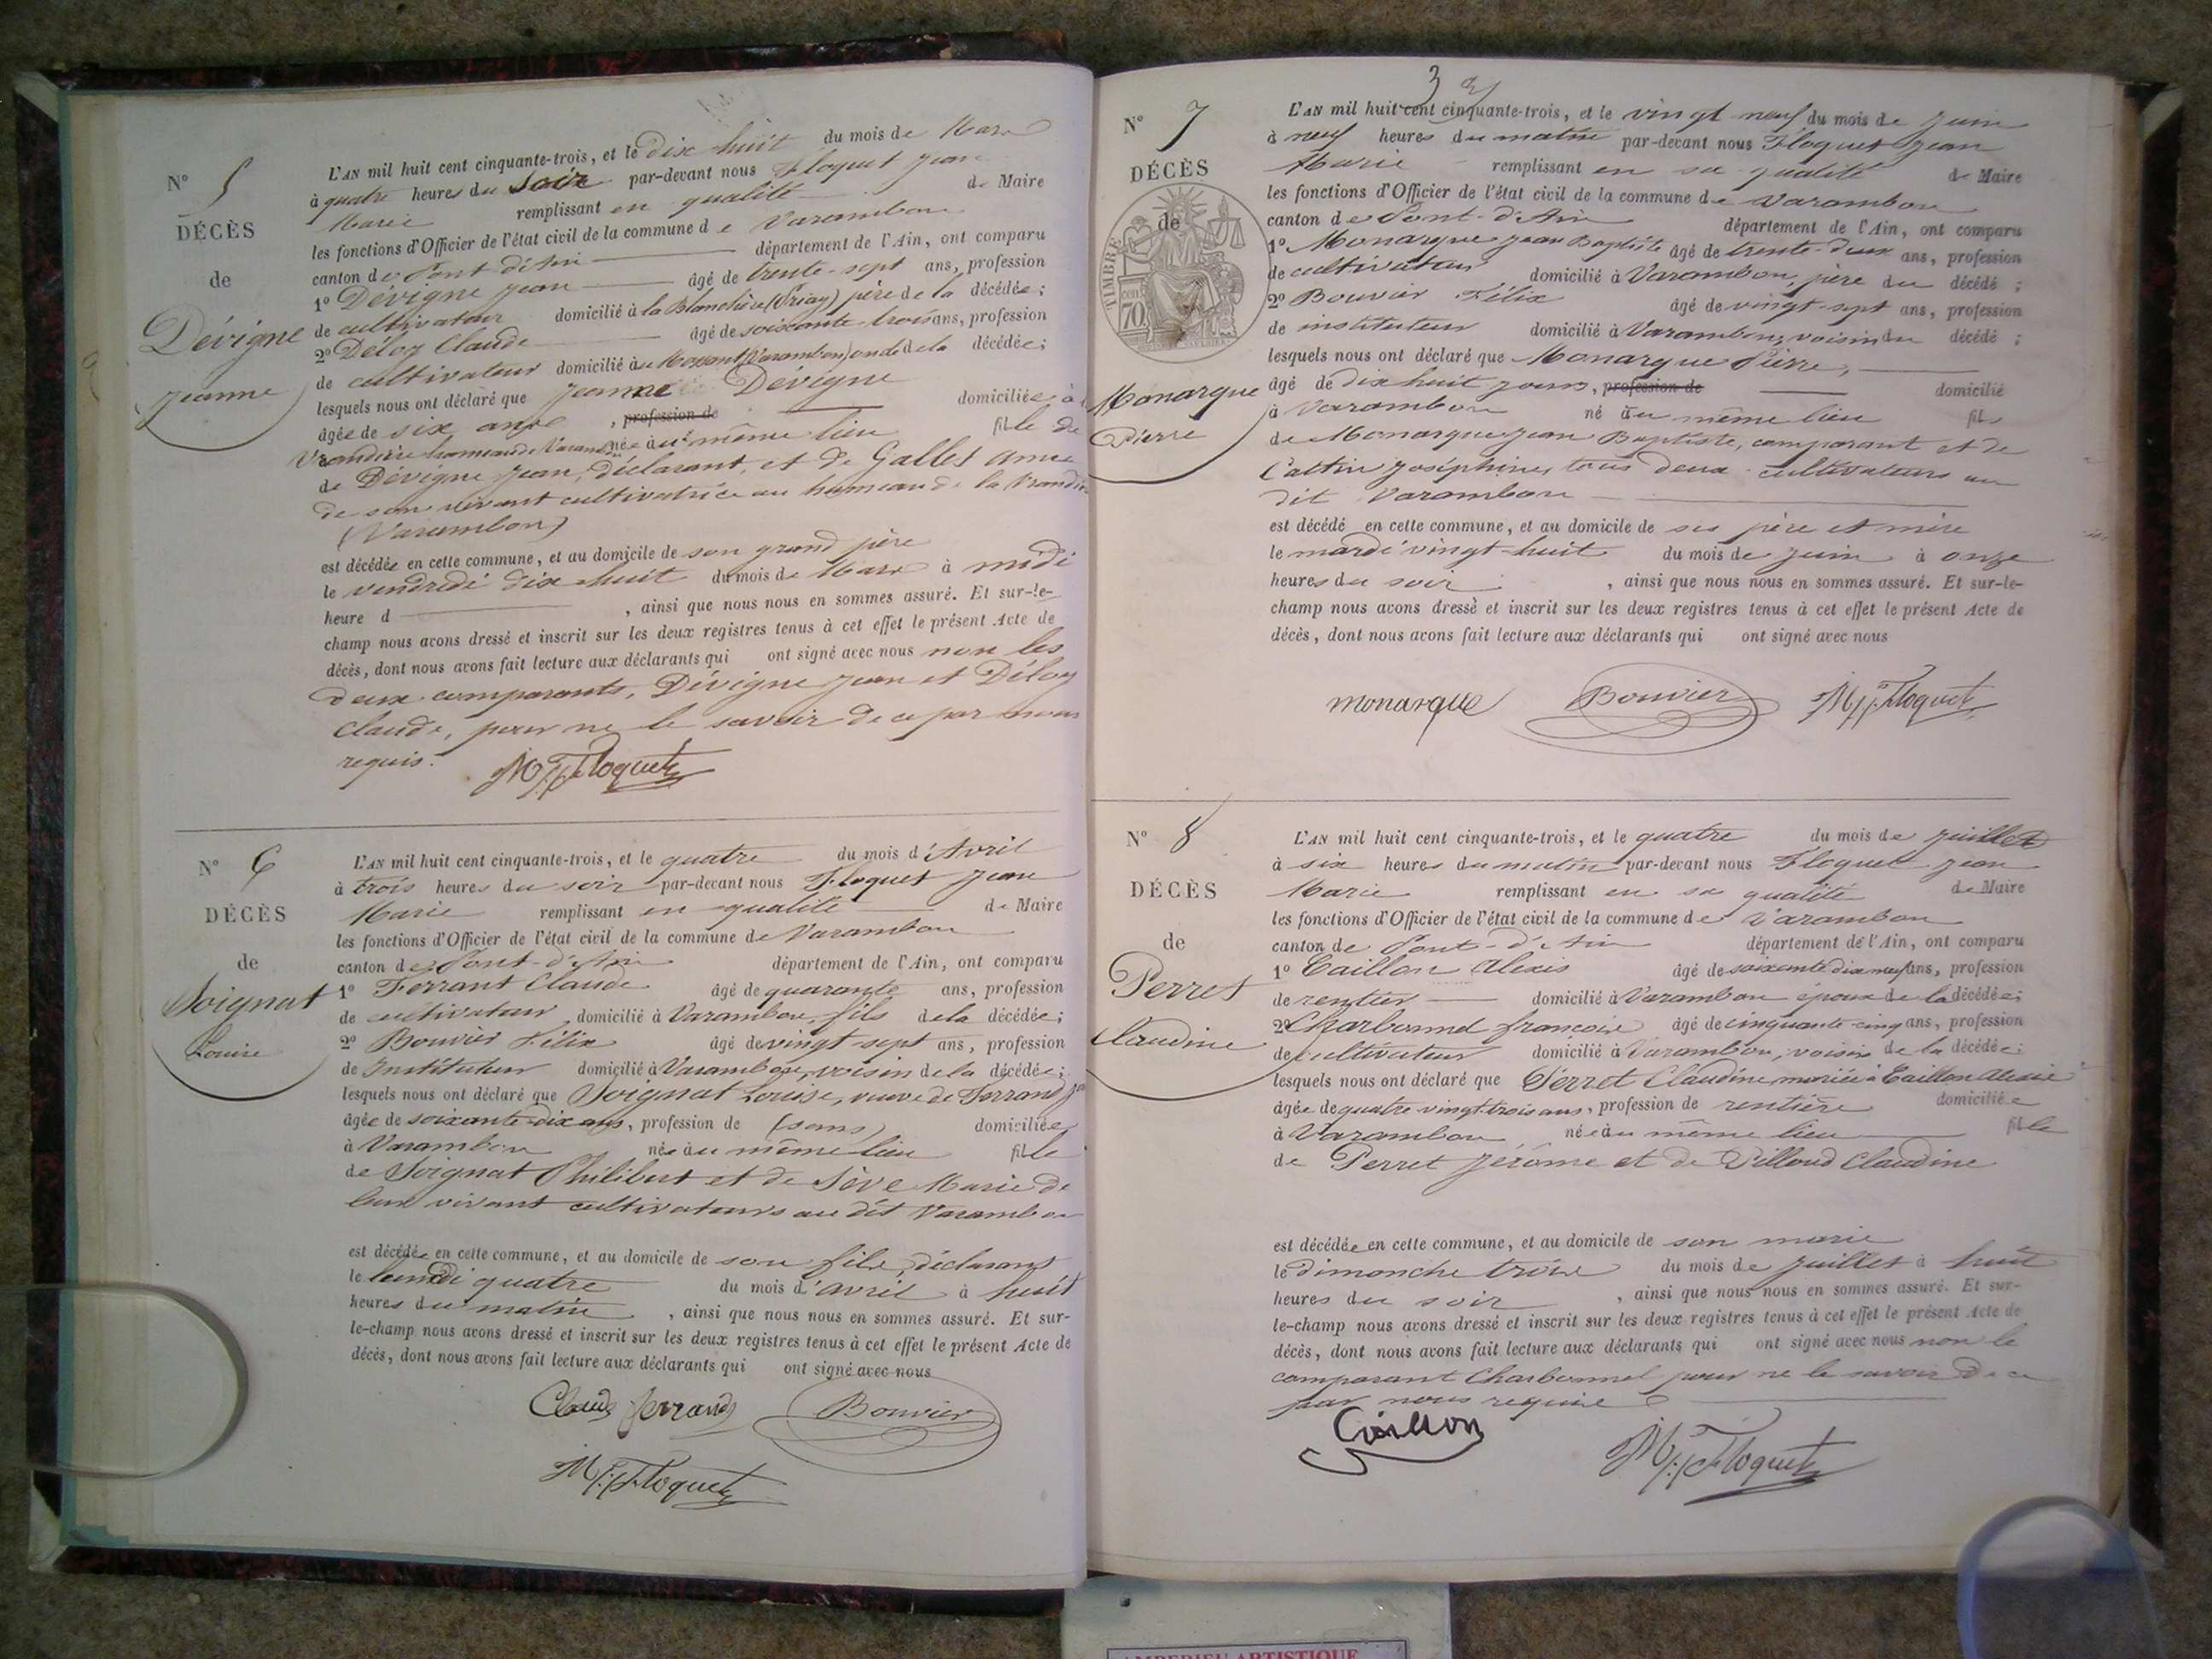 N° 5
DÉCÈS
de
Dévigne
Jeanne
L'AN mil huit cent cinquante-trois, et le dix huit du mois de Mars
à quatre heures du soir par-devant nous Floquet Jean
Marie remplissant en qualité de Maire
les fonctions d'Officier de l'état civil de la commune de Varambon
canton de Pont-d'Ain département de l'Ain, ont comparu
1° Dévigne Jean âgé de trente-sept ans, profession
de cultivateur domicilié à la Blanchère (Priay) père de la décédée ;
2° Déloy Claude âgé de soixante-trois ans, profession
de cultivateur domicilié au (Varambon) oncle de la décédée ;
lesquels nous ont déclaré que Jeanne Dévigne
âgée de six ans , profession de domiciliée à
hameau de Varambon née au même lieu fille de
de Dévigne Jean, déclarant, et de Gallet Anne
de son vivant cultivatrice au hameau de la
(Varambon)
est décédée en cette commune, et au domicile de son grand père
le vendredi dix huit du mois de Mars à midi
heure d , ainsi que nous nous en sommes assuré. Et sur-le-
champ nous avons dressé et inscrit sur les deux registres tenus à cet effet le présent Acte de
décès, dont nous avons fait lecture aux déclarants qui ont signé avec nous non les
deux comparants, Dévigne Jean et Déloy
Claude, pour ne le savoir de ce par nous
requis.
M J Floquet
N° 6
DÉCÈS
de
Soignat
Louise
L'AN mil huit cent cinquante-trois, et le quatre du mois d'Avril
à trois heures du soir par-devant nous Floquet Jean
Marie remplissant en qualité de Maire
les fonctions d'Officier de l'état civil de la commune de Varambon
canton de Pont-d'Ain département de l'Ain, ont comparu
1° Ferrant Claude âgé de quarante ans, profession
de cultivateur domicilié à Varambon, fils de la décédée ;
2° Bouvier Félix âgé de vingt-sept ans, profession
de Instituteur domicilié à Varambon, voisin de la décédée ;
lesquels nous ont déclaré que Soignat Louise, veuve de Ferrand
âgée de soixante-dix ans, profession de (sans) domiciliée
à Varambon née au même lieu fille
de Soignat Philibert et de Sève Marie de
leur vivant cultivateurs au dit Varambon
est décédée en cette commune, et au domicile de son fils, déclarant
le lundi quatre du mois d'avril à huit
heures du matin , ainsi que nous nous en sommes assuré. Et sur-
le-champ nous avons dressé et inscrit sur les deux registres tenus à cet effet le présent Acte de
décès, dont nous avons fait lecture aux déclarants qui ont signé avec nous
Claude ferrand Bouvier
M J Floquet
3
N° 7
DÉCÈS
de
TIMBRE
70
Monarque
Pierre
L'AN mil huit cent cinquante-trois, et le vingt neuf du mois de Juin
à neuf heures du matin par-devant nous Floquet Jean
Marie remplissant en sa qualité de Maire
les fonctions d'Officier de l'état civil de la commune de Varambon
canton de Pont-d'Ain département de l'Ain, ont comparu
1° Monarque Jean Baptiste âgé de trente-deux ans, profession
de cultivateur domicilié à Varambon, père du décédé ;
2° Bouvier Félix âgé de vingt-sept ans, profession
de instituteur domicilié à Varambon, voisin du décédé ;
lesquels nous ont déclaré que Monarque Pierre,
âgé de dix huit jours, profession de domicilié
à Varambon né au même lieu fils
de Monarque Jean Baptiste, comparant et de
Joséphine, tous deux cultivateurs au
dit Varambon
est décédé en cette commune, et au domicile de ses père et mère
le mardi vingt-huit du mois de juin à onze
heures du soir , ainsi que nous nous en sommes assuré. Et sur-le-
champ nous avons dressé et inscrit sur les deux registres tenus à cet effet le présent Acte de
décès, dont nous avons fait lecture aux déclarants qui ont signé avec nous
monarque Bouvier M J Floquet
N° 8
DÉCÈS
de
Perret
Claudine
L'AN mil huit cent cinquante-trois, et le quatre du mois de juillet
à six heures du matin par-devant nous Floquet Jean
Marie remplissant en sa qualité de Maire
les fonctions d'Officier de l'état civil de la commune de Varambon
canton de Pont-d'Ain département de l'Ain, ont comparu
1° Caillon Alexis âgé de soixante dix neuf ans, profession
de rentier domicilié à Varambon époux de la décédée ;
2° Charbonnel françois âgé de cinquante-cinq ans, profession
de cultivateur domicilié à Varambon, voisin de la décédée ;
lesquels nous ont déclaré que Perret Claudine, mariée à Caillon Alexis
âgée de quatre vingt-trois ans, profession de rentière domiciliée
à Varambon, née au même lieu fille
de Perret Jérôme et de Villoud Claudine
est décédée en cette commune, et au domicile de son marie
le dimanche trois du mois de juillet à huit
heures du soir , ainsi que nous nous en sommes assuré. Et sur-
le-champ nous avons dressé et inscrit sur les deux registres tenus à cet effet le présent Acte de
décès, dont nous avons fait lecture aux déclarants qui ont signé avec nous non le
comparant Charbonnel pour ne le savoir de ce
par nous requise
Caillon M J Floquet
AMBERIEU ARTISTIQUE